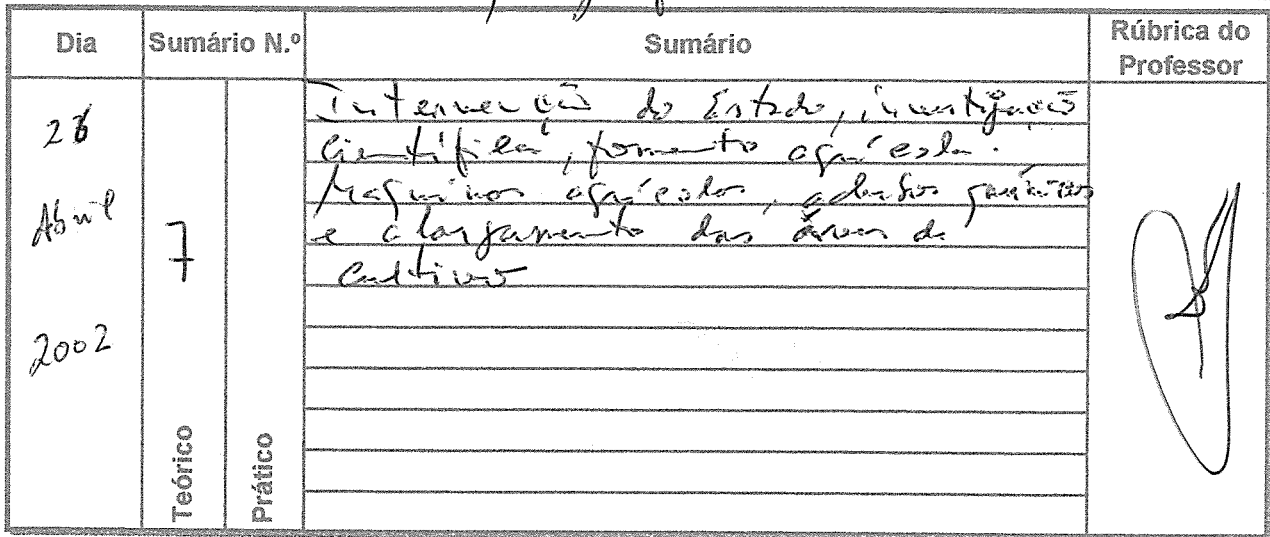 Dia Sumário N.º Sumário Rúbrica do Professor
Abril
2002
7
Teórico
Prático
Intervenção do Estado, investigação
científica, fomento agrícola.
Maquinas agrícolas, adubos químicos
e alargamento das áreas de
cultivo